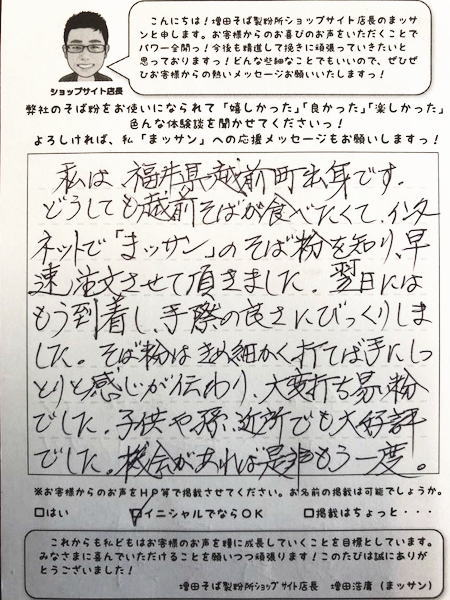 こんにちは！増田そば製粉所ショップサイト店長のまッサ
ンと申します。お客様からのお喜びのお声をいただくことで
パワー全開っ！今後も精進して挽きに頑張っていきたいと
思っておりますっ！どんな些細なことでもいいので、ぜひぜ
ひお客様からの熱いメッセージお願いいたしますっ！
ショップサイト店長
弊社のそば粉をお使いになられて「嬉しかった」「良かった」「楽しかった」
色んな体験談を聞かせてくださいっ！
よろしければ、私「まッサン」への応援メッセージもお願いしますっ！
私は、福井県越前町出身です。
どうしても越前そばが食べたくて、インタ
ネットで「まッサン」のそば粉を知り、早
速注文させて頂きました。翌日には
もう到着し、手際の良さにびっくりしま
した。そば粉はきめ細かく打てば手にしっ
とりと感じが伝わり、大変打ち易い粉
でした。子供や孫、近所でも大好評
でした。機会があれば是非もう一度。
※お客様からのお声をHP等で掲載させてください。お名前の掲載は可能でしょうか。
□はい ☑イニシャルでならOK □掲載はちょっと・・・
これからも私どもはお客様のお声を糧に成長していくことを目標としています。
みなさまに喜んでいただけることを願いつつ頑張ります！このたびは誠にありが
とうございました！
増田そば製粉所ショップサイト店長 増田浩庸（まッサン）